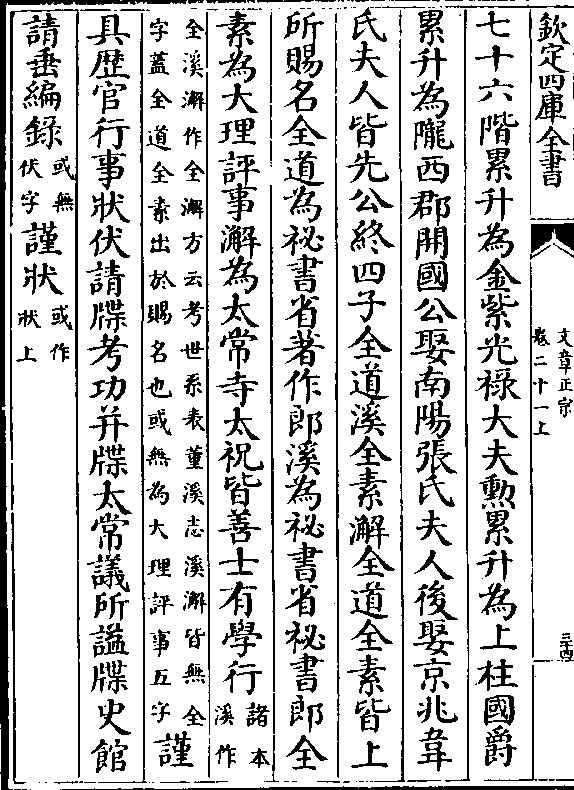 欽定四庫全書
文章正宗
卷二十一上
三十四
七十六階累升為金紫光祿大夫勲累升為上柱國爵
累升為隴西郡開國公娶南陽張氏夫人後娶京兆韋
氏夫人皆先公終四子全道溪全素澥全道全素皆上
所賜名全道為祕書省著作郎溪為祕書省祕書郎全
素為大理評事澥為太常寺太祝皆善士有學行諸本溪作
全溪澥作全澥方云考世系表董溪志溪澥皆無全
字蓋全道全素出於賜名也或無為大理評事五字謹
具歴官行事狀伏請牒考功并牒太常議所諡牒史館
請垂編錄或無伏字謹狀或作狀上